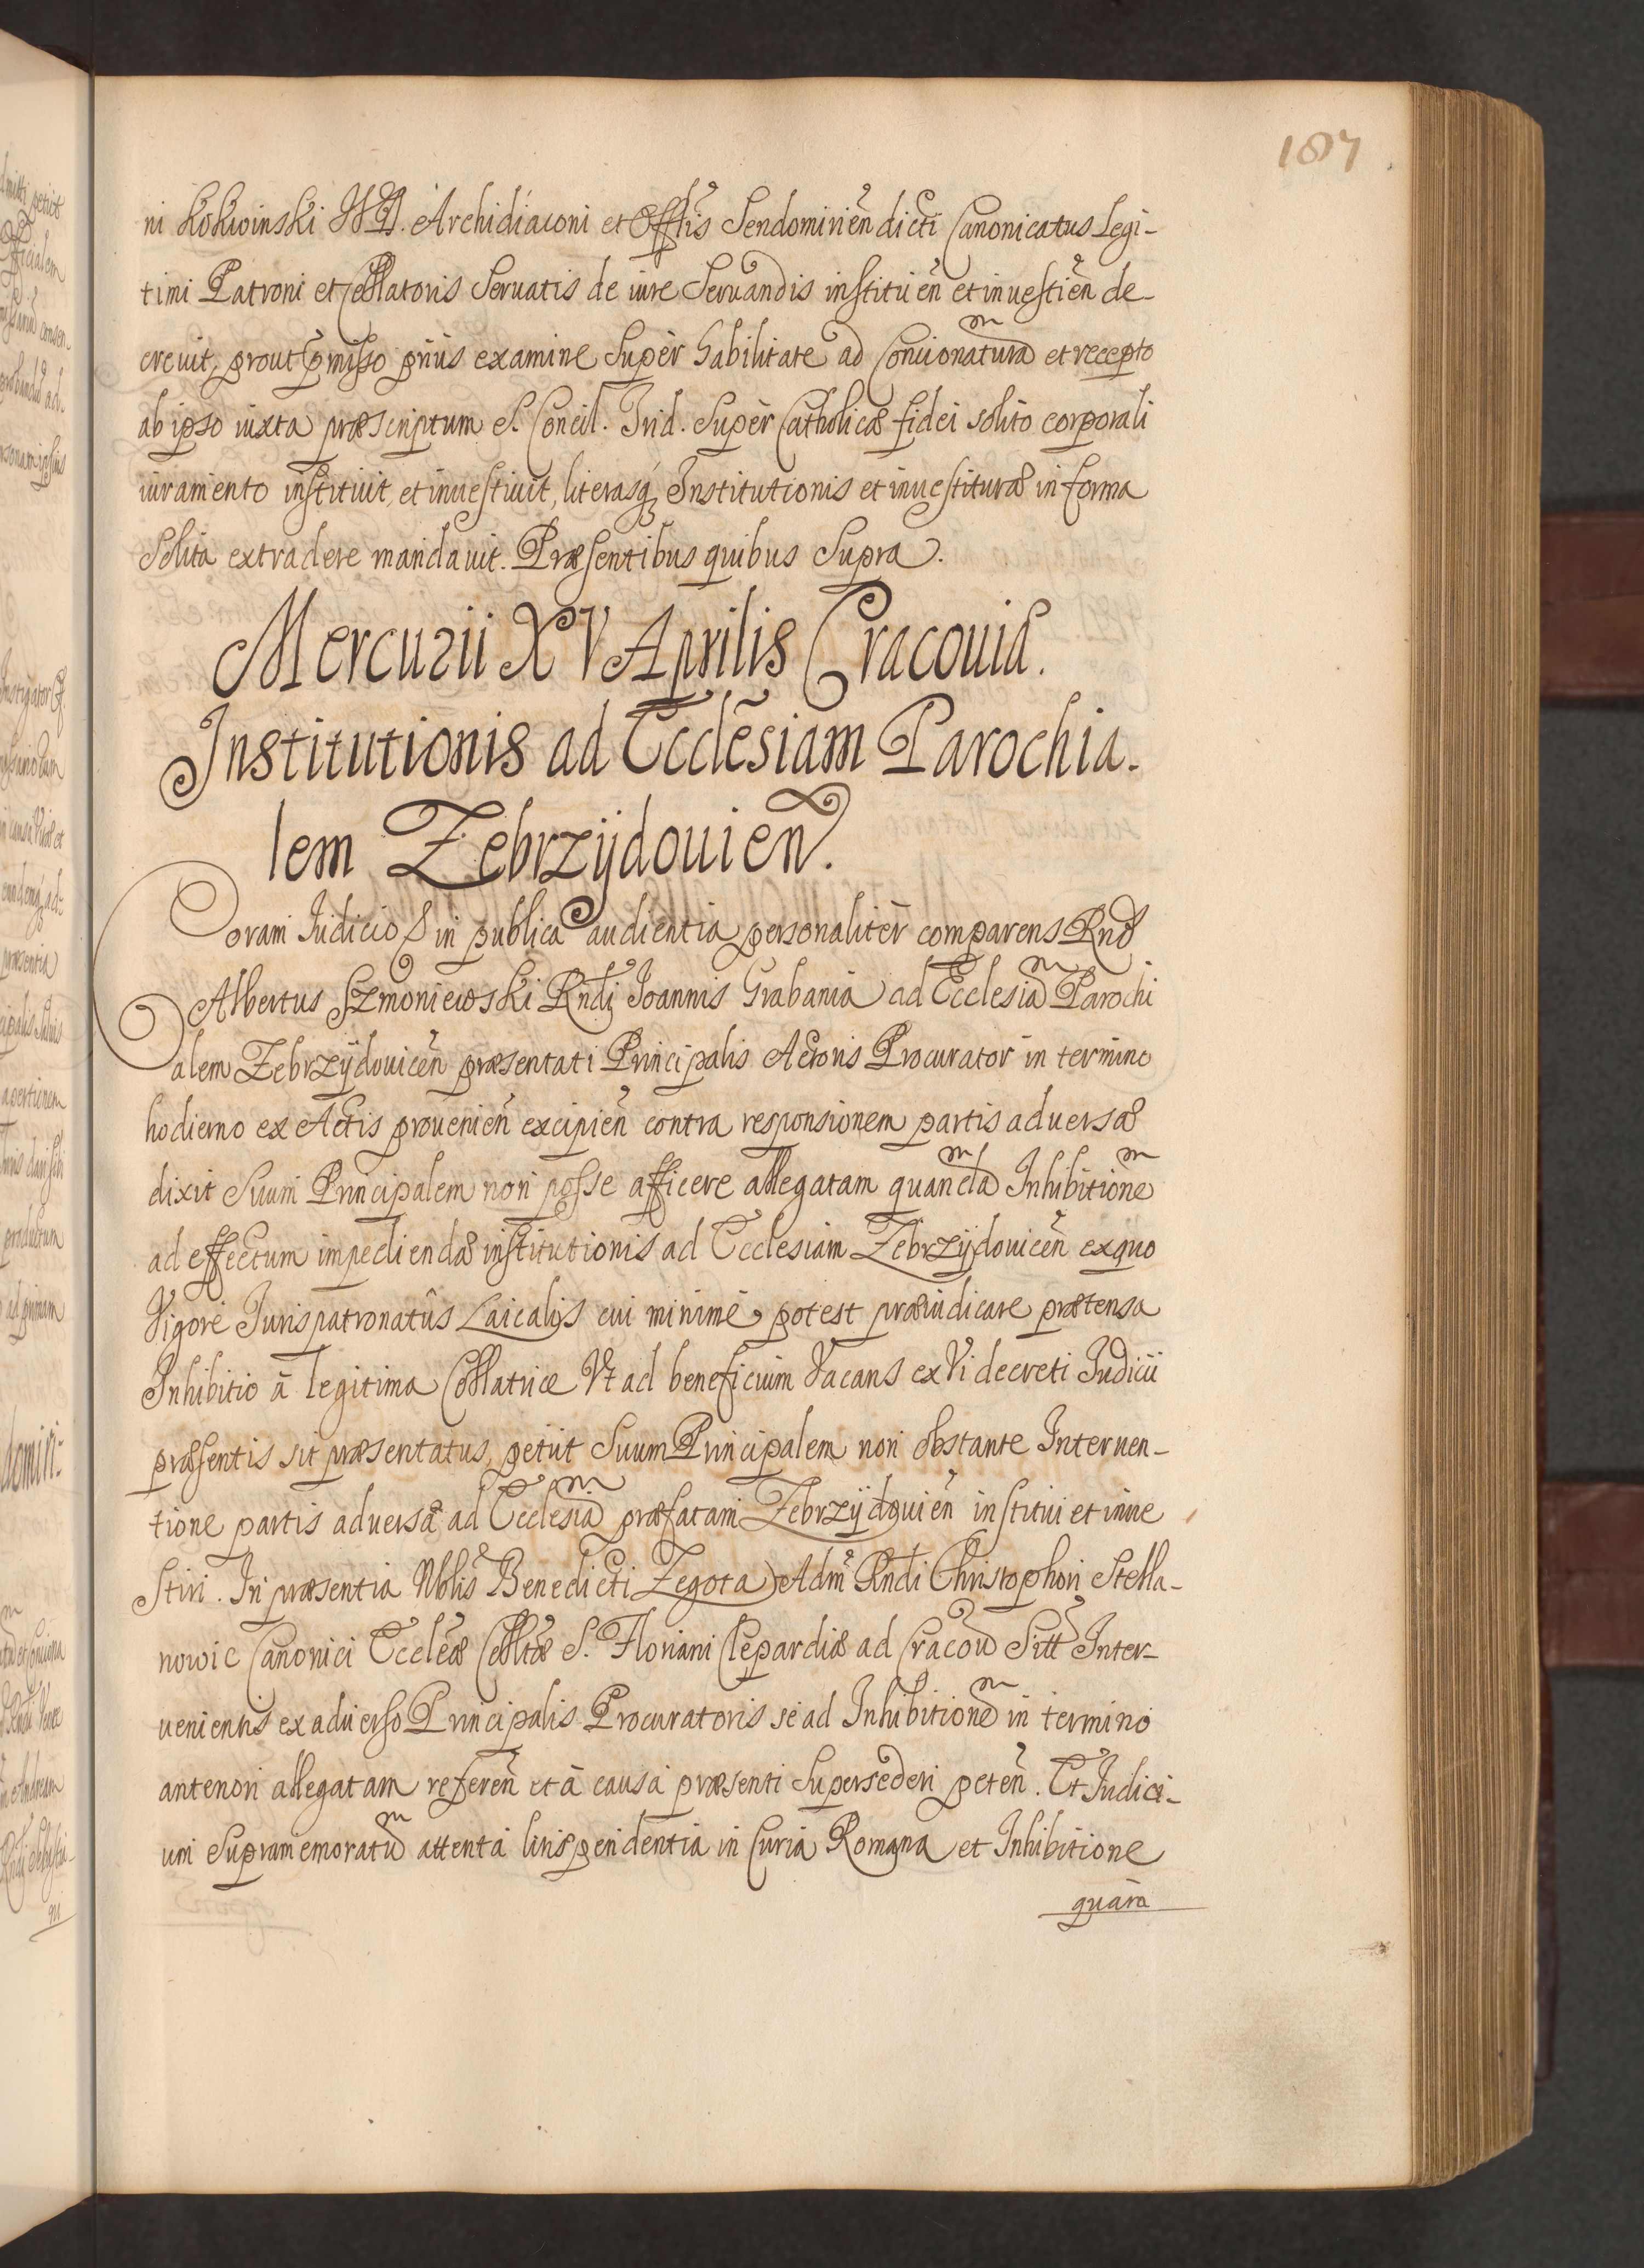 187
ni Kokwinski Archidiaconi et Offlis Sendomirien̄ dicti Canonicatus Legi-
timi Patroni et Collatoris Seruatis de iure Seruandis instituen̄ et inuestien̄ de-
creuit, prout p̄misso prius examine Super habilitate ad Concionatura͞m et recepto
ab ipso iuxta præscriptum S. Concil. Trid. Super Catholicæ fidei solito corporali
iuramento instituit, et inuestiuit, literasq; Institutionis et inuestituræ in forma
Solita extradere mandauit. Præsentibus quibus Supra.
Mercurii XV Aprilis Cracouiæ.
Institutionis ad Ecclesiam Parochia-
lem Zebrzÿdouien̄.
Coram Iudicio in publica audientia personaliter comparens Rnd
Albertus Szmoniewski Rndi Ioannis Grabania ad Ecclesia͞m Parochi
alem Zebrzÿdouicen̄ præsentati Principalis Actoris Procurator in termino
hodierno ex Actis prouenien̄ excipien̄ contra responsionem partis aduersæ
dixit Suum Principalem non posse afficere allegatam quanda͞m Inhibitione͞m
ad effectum impediendæ institutionis ad Ecclesiam Zebrzÿdouicen̄ exquo
Vigore Iurispatronatûs Laicalis cui minimè potest præiudicare prætensa
Inhibitio à legitima Collatrice Vt ad beneficium Vacans ex Vi decreti Iudicii
præsentis sit præsentatus, petiit Suum Principalem non obstante Interuen-
tione partis aduersæ ad Ecclesia͞m præfatam Zebrzÿdouien̄ institui et inue
stiri. In præsentia Nblis Benedicti Zegota Adm̄ Rndi Christophori Stella-
nowic Canonici Eccleæ Colltæ S. Floriani Clepardiæ ad Cracou͞ Sitt Inter-
uenientis ex aduerso Principalis Procuratoris se ad Inhibitione͞m in termino
anteriori allegatam referen̄ et à causa præsenti Supersederi peten̄. Et Iudici-
um Supramemoratu͞m attenta litispendentia in Curia Romana et Inhibitione
quara